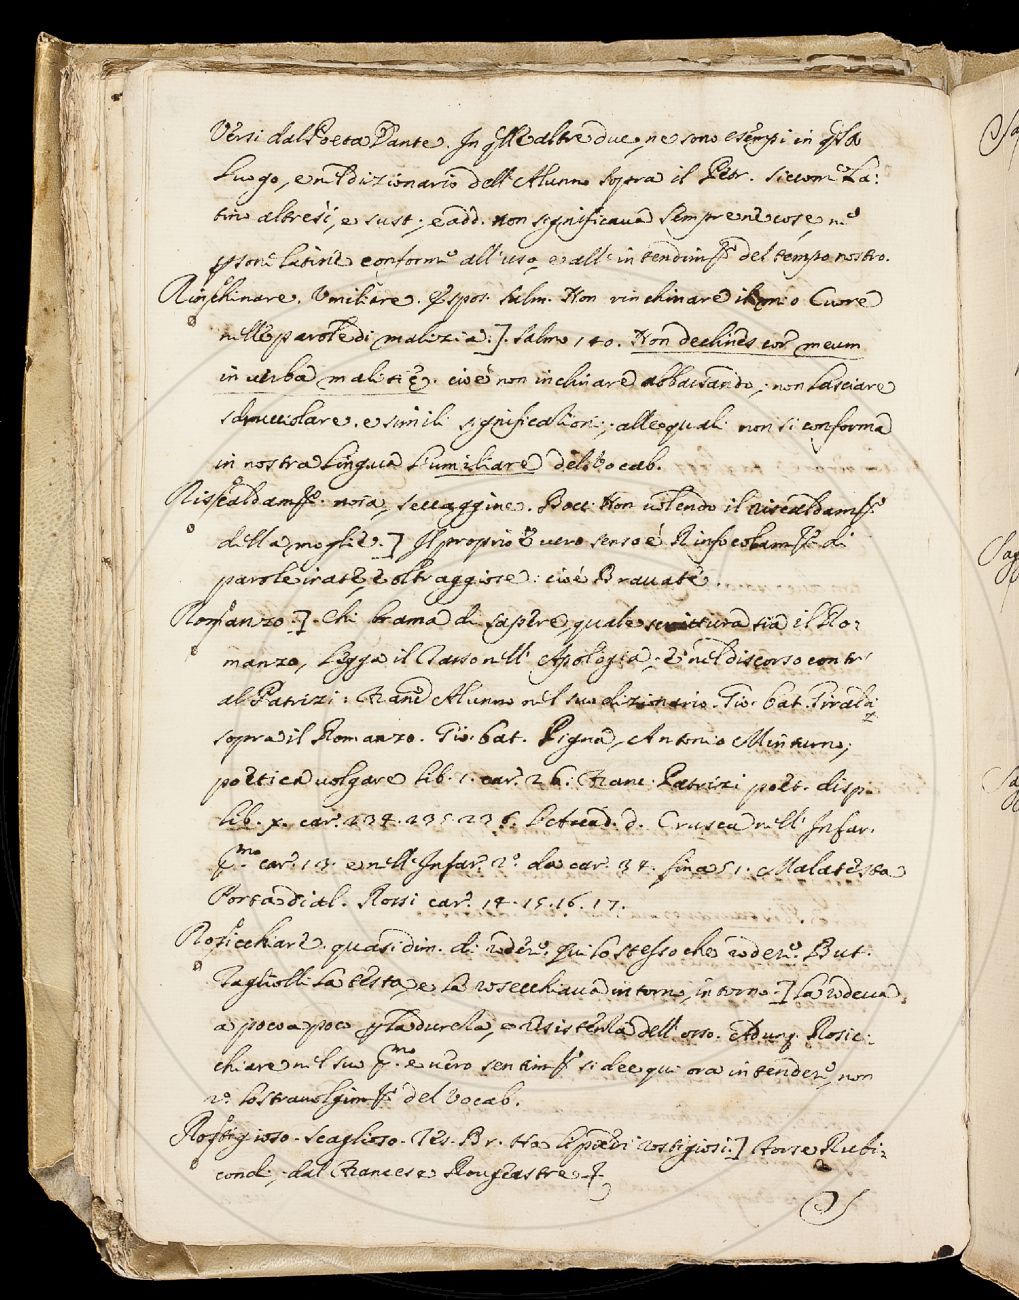 Versi dal Poeta Dante. In qlle altre due, ne sono esempi in qsto
Luogo, e nel dizionario dell'Alunno sopra il Petr. siccome La:
tino altresì, e sust., e add. non significava sempre nè cose, nè
psone latine conforme all'uso, e all'intendimto del tempo nostro.
Rinchinare. Umiliare. Espos. Salm. Non rinchinare il mio Cuore
nelle parole di malizia.]. Salmo 140. Non declines cor meum
in verba malitiæ. cioè non inchinare abbassando, non lasciare
sdrucciolare. e simili significationi, alle quali non si conforma
in nostra lingua l'umiliare del Vocab.
Riscaldamto. noia, seccaggine. Bocc. Non volendo il riscaldamto
della moglie.] Il proprio e vero senso è Rinfocolamto di
parole irate, e oltraggiose: cioè Bravate.
Romanzo.]. Chi brama di sapere, quale scrittura sia il Ro:
manzo, legga il Tasso nell'Apologia, e nel discorso contr'
al Patrizi: Franc Alunno nel suo dizionario. Gio. bat. Giraldi
sopra il Romanzo. Gio. bat. Pigna, Antonio Minturno,
poetica volgare lib. 1. car. 26. Franc. Patrizi poet. disp.
lib. x. car. 234. 235. 236. l'Acad. d. Crusca nell'Infar.
pmo car. 13. e nell'Infar. 2o. da car. 34. fin a 51. Malatesta
Porta dial. Rossi car. 14. 15. 16. 17.
Rosicchiare. quasi dim. di rodere. Qui lo stesso che rodere. But.
Tagliolli la testa, e la rosecchiava intorno, intorno.] La rodeva
a poco a poco p la durezza, e resistenza dell'osso. Adunq. Rosic:
chiare nel suo pmo. e vero sentimto si dee qui ora intendere, non
lo stravolgimto del Vocab.
Rostigioso. Scaglioso. Tes. Br. Ha li piedi rostigiosi.] Forse Rubi:
condi, dal Francese Rougeastre.
S